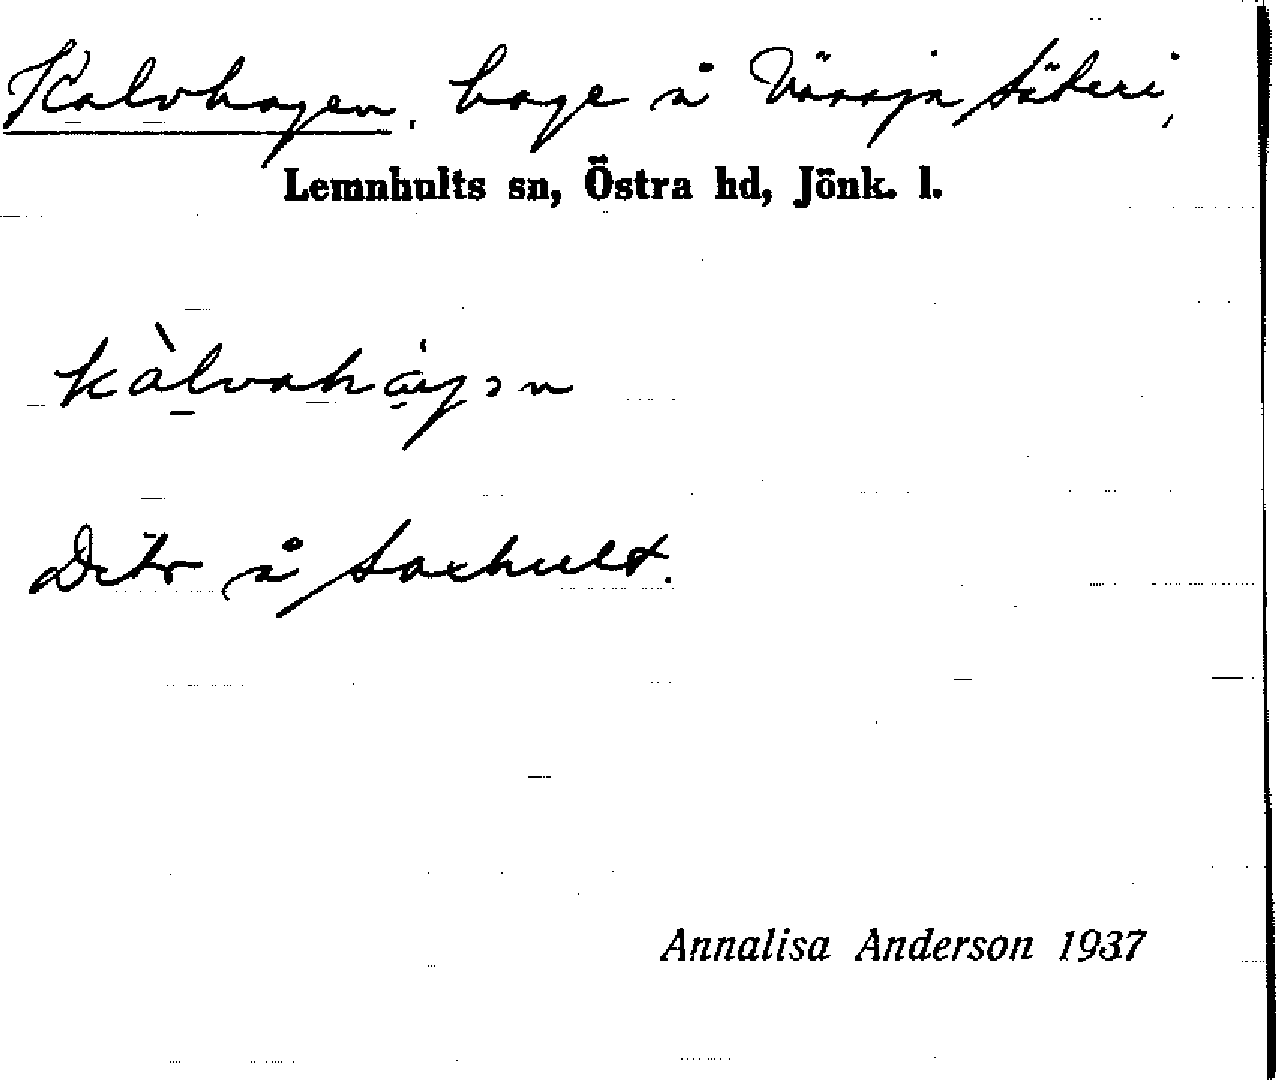 Kalvhagen, hage å Vässja säteri,
Lemnhults sn, Östra hd, Jönk. l.
kàlvahágɘn
Dito å Saxhult.
Annalisa Anderson 1937